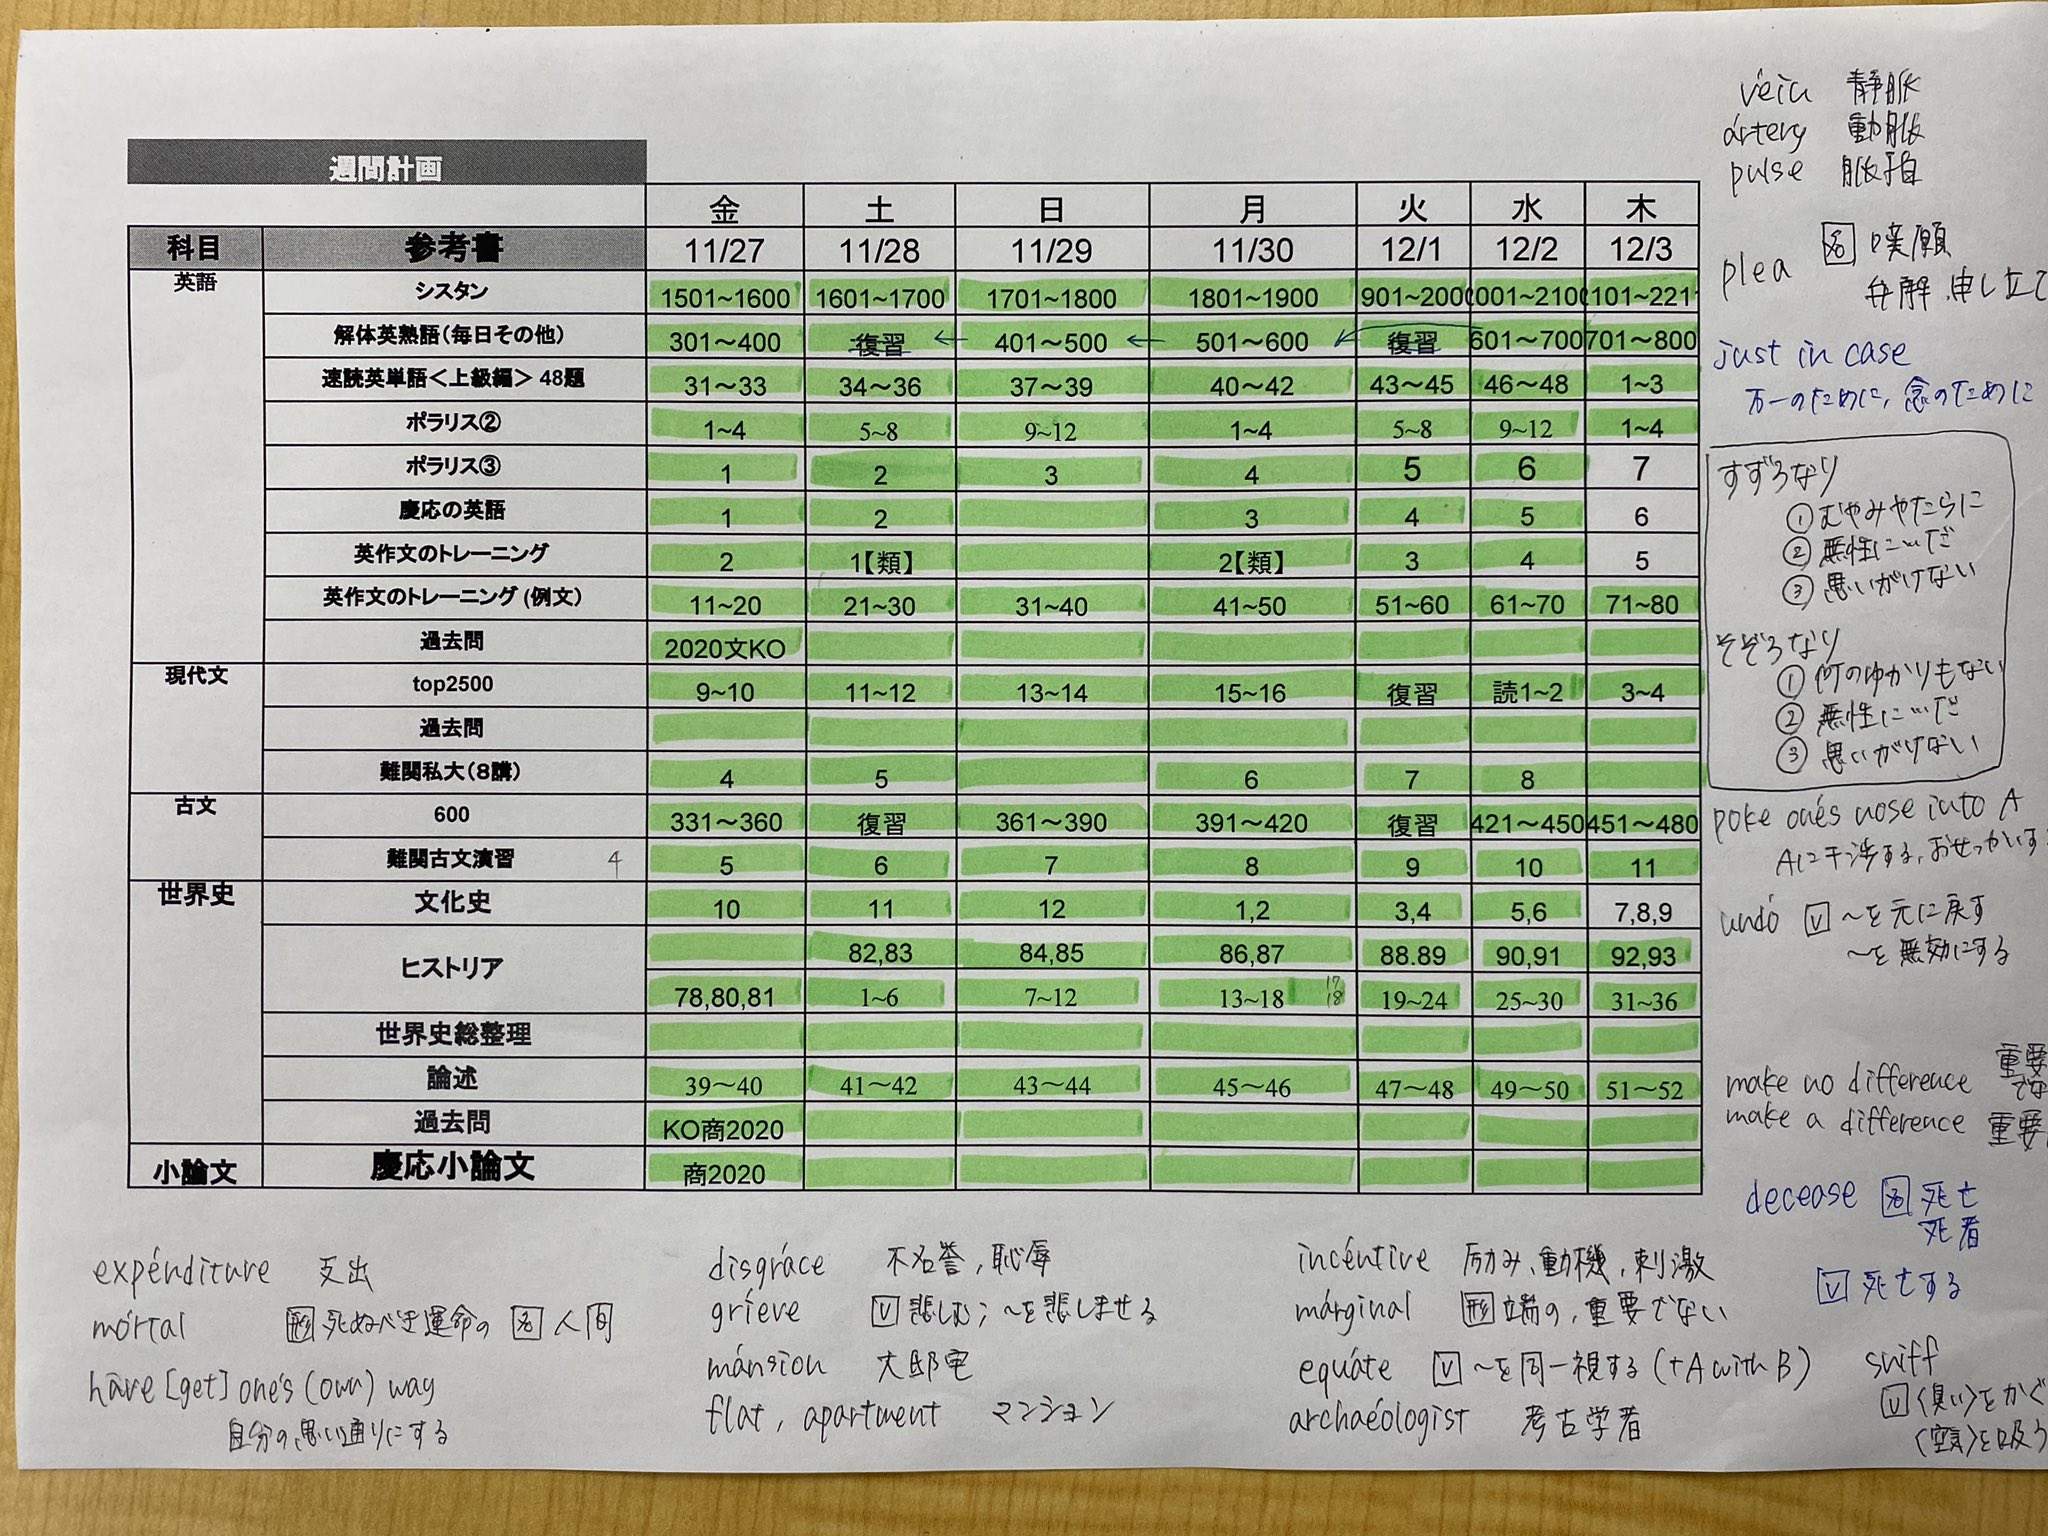 週間計画
金 土 日 月 火 水 木
科目 参考書 11/27 11/28 11/29 11/30 12/1 12/2 12/3
英語 シスタン 1501~1600 1601~1700 1701~1800 1801~1900 901~200 001~210 101~221
解体英熟語(毎日その他) 301～400 復習 401～500 501～600 復習 601～700 701～800
速読英単語＜上級編＞48題 31～33 34～36 37～39 40～42 43～45 46～48 1~3
ポラリス② 1~4 5~8 9~12 1~4 5~8 9~12 1~4
ポラリス③ 1 2 3 4 5 6 7
慶応の英語 1 2 3 4 5 6
英作文のトレーニング 2 1【類】 2【類】 3 4 5
英作文のトレーニング(例文) 11~20 21~30 31~40 41~50 51~60 61~70 71~80
過去問 2020文KO
現代文 top2500 9~10 11~12 13~14 15~16 復習 読1~2 3~4
過去問
難関私大(8講) 4 5 6 7 8
古文 600 331～360 復習 361～390 391～420 復習 421～450 451～480
難関古文演習 4 5 6 7 8 9 10 11
世界史 文化史 10 11 12 1,2 3,4 5,6 7,8,9
ヒストリア 82,83 84,85 86,87 88.89 90,91 92,93
78,80,81 1~6 7~12 13~18 17 18 19~24 25~30 31~36
世界史総整理
論述 39～40 41～42 43～44 45～46 47～48 49～50 51～52
過去問 KO商2020
小論文 慶応小論文 商2020
vein 静脈
artery 動脈
pulse 脈拍
plea 名 嘆願
弁解、申し立て
just in case
万一のために, 念のために
すずろなり
① むやみやたらに
② 無性に…だ
③ 思いがけない
そぞろなり
① 何のゆかりもない
② 無性に…だ
③ 思いがけない
poke one's nose into A
Aに干渉する, おせっかいす
undo V ～を元に戻す
～を無効にする
make no difference 重要
でな
make a difference 重要
decease 名 死亡
死者
V 死亡する
sniff
V〈臭い〉をかぐ
〈空気〉を吸う
expénditure 支出
mórtal 形 死ぬべき運命の 名 人間
have [get] one's (own) way
自分の思い通りにする
disgráce 不名誉, 恥辱
grieve V 悲しむ; ～を悲しませる
mánsion 大邸宅
flat, apartment マンション
incéntive 励み、動機, 刺激
márginal 形 端の, 重要でない
equáte V ～を同一視する (+A with B)
archaéologist 考古学者